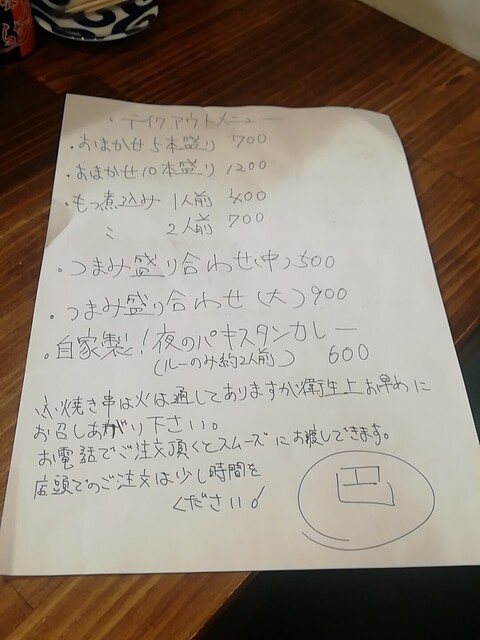 ・テイクアウトメニュー
・おまかせ5本盛り 700
・おまかせ10本盛り 1200
・もつ煮込み 1人前 400
〃 2人前 700
・つまみ盛り合わせ(中)500
・つまみ盛り合わせ(大)900
・自家製!夜のパキスタンカレー
(ルーのみ約2人前) 600
※焼き串は火は通してありますが衛生上お早めに
お召しあがり下さい。
お電話でご注文頂くとスムーズにお渡しできます。
店頭でのご注文は少し時間を
ください!
巴